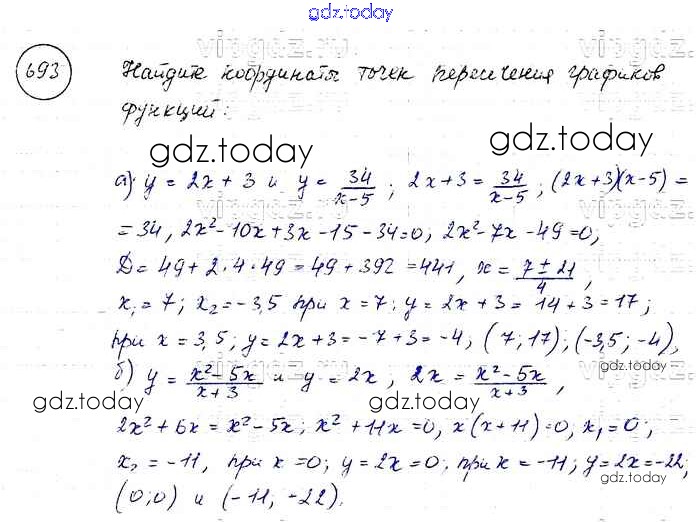 gdz.today
vipgdz.ru
693 Найдите координаты точек пересечения графиков
функций:
gdz.today gdz.today
а) y = 2x + 3 и y = 34/(x-5) ; 2x+3 = 34/(x-5) ; (2x+3)(x-5) =
vipgdz.ru vipgdz.ru
= 34, 2x²-10x+3x-15-34=0; 2x²-7x-49=0,
D = 49 + 2·4·49 = 49 + 392 = 441, x = (7±21)/4
x₁ = 7; x₂ = -3,5 при x = 7: y = 2x + 3 = 14 + 3 = 17;
при x = 3,5; y = 2x+3 = -7+3 = -4, (7; 17); (-3,5; -4),
gdz.today
б) y = (x²-5x)/(x+3) и y = 2x, 2x = (x²-5x)/(x+3),
gdz.today gdz.today gdz.today
2x² + 6x = x² - 5x; x² + 11x = 0, x(x+11)=0, x₁ = 0;
x₂ = -11, при x = 0; y = 2x = 0; при x = -11; y = 2x = -22;
(0; 0) и (-11; -22).
gdz.today